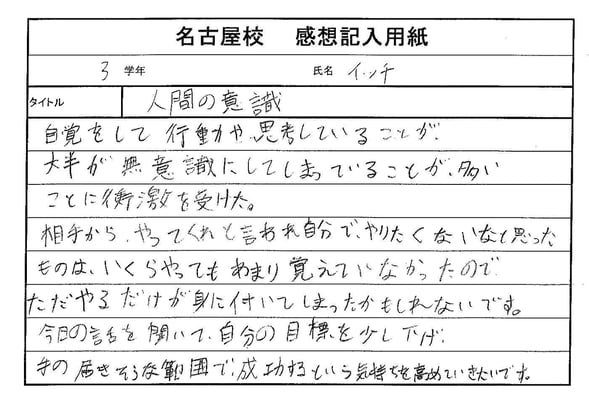 名古屋校 感想記入用紙
3 学年 氏名 イッチ
タイトル 人間の意識
自覚をして行動や、思考していることが、
大半が無意識にしてしまっていることが、多い
ことに衝激を受けた。
相手から、やってくれと言われ自分で、やりたくないなと思った
ものは、いくらやってもあまり覚えていなかったので
ただやるだけが身に付いてしまったかもしれないです。
今日の話を聞いて、自分の目標を少し下げ、
手の届きそうな範囲で、成功するという気持ちを高めていきたいです。